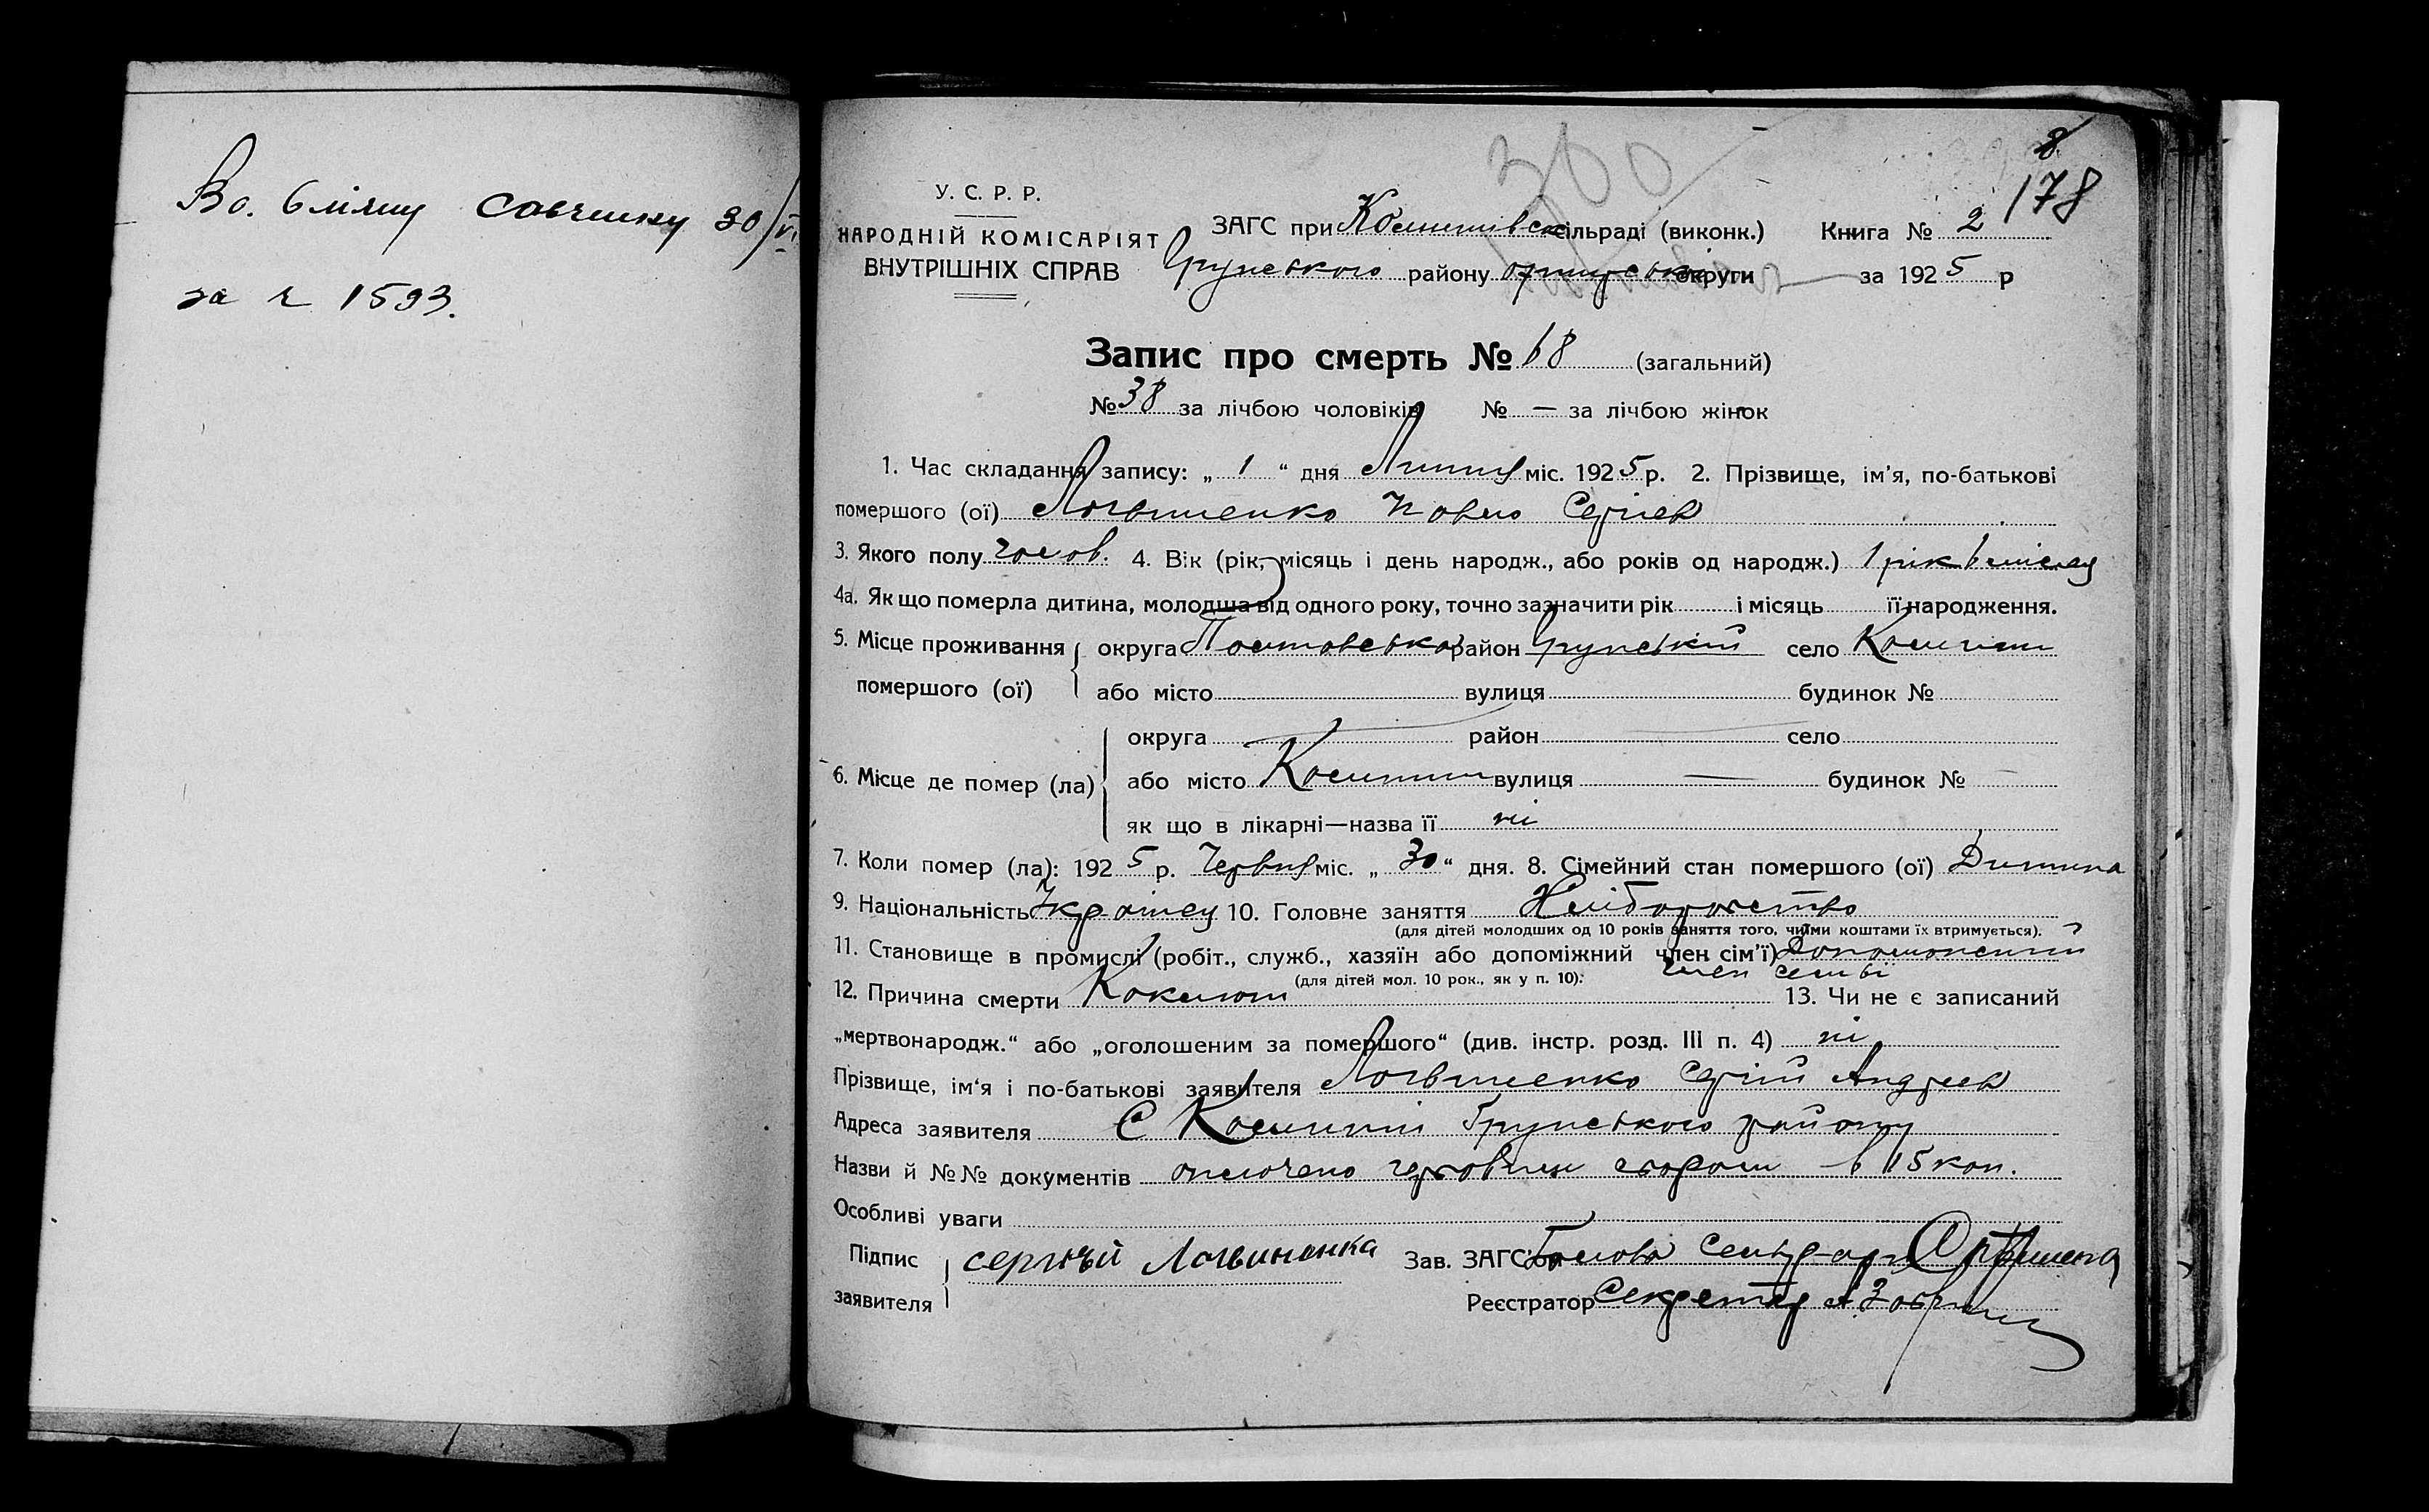 за № 1593.
8
178
300
У. С. Р. Р.
НАРОДНІЙ КОМІСАРІЯТ
ВНУТРІШНІХ СПРАВ
ЗАГС при сільраді (виконк.) Книга № 2
Грунського району округи за 1925 р
Запис про смерть № 68 (загальний)
№ 38 за лічбою чоловіків № — за лічбою жінок
1. Час складання запису: „ 1 “ дня Липня міс. 1925 р. 2. Прізвище, ім’я, по-батькові
помершого (ої) Логвиненко Павло Сергіев
3. Якого полу чолов. 4. Вік (рік, місяць і день народж., або років од народж.) 1 рік 6 місяц
4а. Як що померла дитина, молодша від одного року, точно зазначити рік і місяць її народження.
5. Місце проживання округа Полтавська район Грунський село Комиши
помершого (ої) або місто вулиця будинок №
округа район село
6. Місце де помер (ла) або місто Комиши вулиця — будинок № —
як що в лікарні—назва її ні
7. Коли помер (ла): 1925 р. Червня міс. „ 30 “ дня. 8. Сімейний стан помершого (ої) Дитина
9. Національність Українец 10. Головне заняття Хліборобство
(для дітей молодших од 10 років заняття того, чиїми коштами їх втримується).
11. Становище в промислі (робіт., служб., хазяїн або допоміжний член сім’ї) Допоможний
член семьі
(для дітей мол. 10 рок., як у п. 10).
12. Причина смерти Коклюш 13. Чи не є записаний
„мертвонародж.“ або „оголошеним за помершого“ (див. інстр. розд. III п. 4) ні
Прізвище, ім‘я і по-батькові заявителя Логвиненко Сергій Андреев
Адреса заявителя С Комиши Грунського району
Назви й №№ документів оплочено гербовим збором в 15 коп.
Особливі уваги
Підпис заявителя Логвиненка Зав. ЗАГС’ом Голова
Реєстратор Секретар